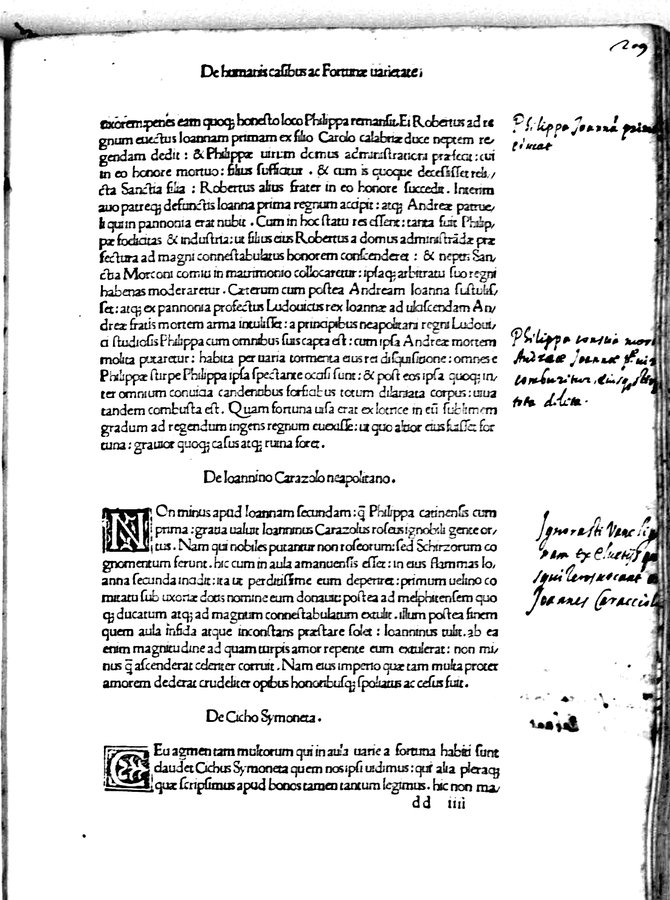 209
De humanis casibus ac Fortunæ uarietate;
uxorem: penes eam quoq; honesto loco Philippa remansit. Ei Robertus ad re
gnum euectus Ioannam primam ex filio Carolo calabriæ duce neptem re,
gendam dedit : & Philippæ uirum domus administrationi præfecit: cui
in eo honore mortuo: filius sufficitur . & cum is quoque decessisset reli,
cta Sanctia filia : Robertus alius frater in eo honore succedit. Interim
auo patreq; defunctis Ioanna prima regnum accipit : atq; Andreæ patrue,
li qui in pannonia erat nubit . Cum in hoc statu res essent: tanta fuit Philip,
pæ foelicitas & industria: ut filius eius Robertus a domus administrādæ præ
fectura ad magni connestabulatus honorem conscenderet : & neptis San,
ctia Morconi comiti in matrimonio collocaretur: ipsaq; arbitratu suo regni
habenas moderaretur . Cæterum cum postea Andream Ioanna sustulis,
set: atq; ex pannonia profectus Ludouicus rex Ioannæ ad ulciscendam An,
dreæ fratis mortem arma intulisset : a principibus neapolitani regni Ludoui,
ci studiosis Philippa cum omnibus suis capta est : cum ipsa Andreæ mortem
molita putaretur: habita per uaria tormenta eius rei disquisitione: omnes e
Philippæ stirpe Philippa ipsa spectante occisi sunt : & post eos ipsa quoq; in,
ter omnium conuicia candentibus forficibus totum dilaniata corpus : uiua
tandem combusta est . Quam fortuna uisa erat ex lotrice in eū sublimem
gradum ad regendum ingens regnum euexisse: ut quo altior eius fuisset for
tuna : grauior quoq; casus atq; ruina foret.
De Ioannino Carazolo neapolitano.
NOn minus apud Ioannam secundam: q̄ Philippa catinensis cum
prima : gratia ualuit Ioanninus Carazolus roseus ignobili gente or,
tus . Nam qui nobiles putantur non roseorum: sed Schizorum co
gnomentum ferunt. hic cum in aula amanuensis esset : in eius flammas Io,
anna secunda incidit : ita ut perditissime eum deperiret: primum uelino co
mitatu sub uxoriæ dotis nomine eum donauit: postea ad melphitensem quo
q; ducatum atq; ad magnum connestabulatum extulit . illum postea finem
quem aula infida atque inconstans præstare solet : Ioanninus tulit. ab ea
enim magnitudine ad quam turpis amor repente eum extulerat: non mi,
nus q̄ ascenderat celeriter corruit . Nam eius imperio quæ tam multa propter
amorem dederat crudeliter opibus honoribusq; spoliatus ac cesus fuit.
De Cicho Symoneta.
CEu agmen tam multorum qui in aula uarie a fortuna habiti sunt
claudet Cichus Symoneta quem nos ipsi uidimus: qui alia pleraq;
quæ scripsimus apud bonos tamen tantum legimus. hic non ma,
dd iiii
Philippa Joannā
Philippa conscia
Andreæ Joannæ
comburitur
tota
Ignorasti
nam ex
Joannes Caracciol